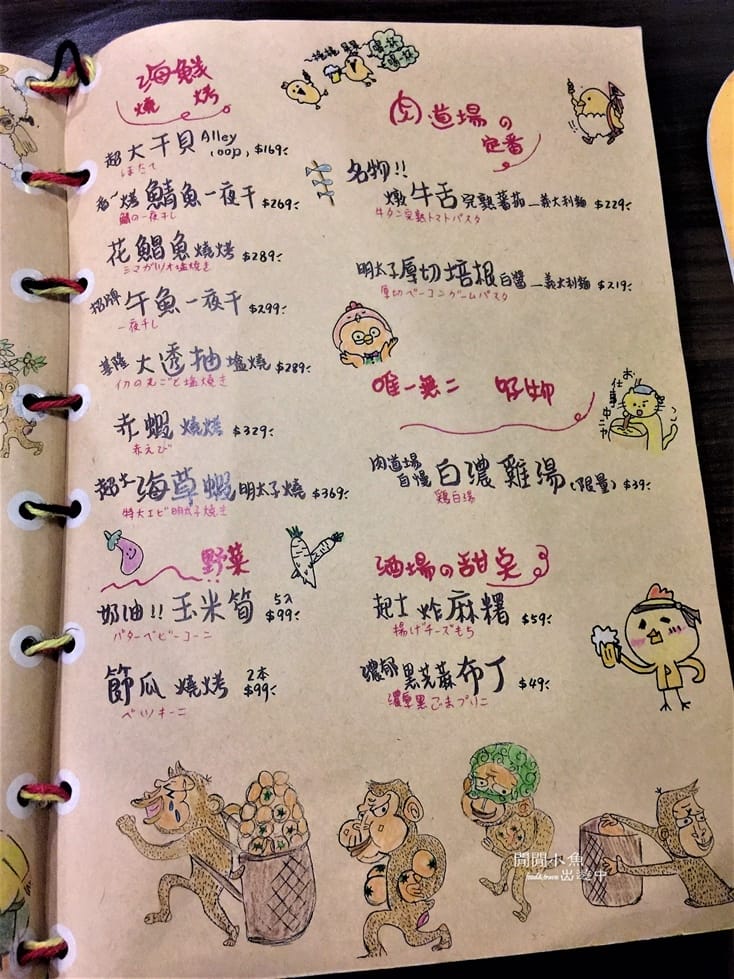 海鮮
燒 烤
超大干貝 Alley oop, $169
ほたて
烤鯖魚一夜干 $269
鯖の一夜干し
花鯧魚燒烤 $289
シマガツオ塩焼き
招牌 午魚一夜干 $299
一夜干し
基隆 大透抽 塩燒 $289
イカの丸ごと塩焼き
赤蝦 燒烤 $329
赤えび
超大海草蝦明太子燒 $369
特大エビ明太子焼き
野菜
奶油!! 玉米筍 5入 $99
バターベビーコーン
節瓜 燒烤 2本 $99
ズッキーニ
肉道場の
定番
名物!!
燉牛舌完熟蕃茄義大利麵 $229
牛タン完熟トマトパスタ
明太子厚切培根白醬義大利麵 $219
厚切ベーコンクリームパスタ
唯一無二 好物
お仕事中ニャ
肉道場
自慢 白濃雞湯(限量) $39
鶏白湯
酒場の甜点
起士 炸麻糬 $59
揚げチーズもち
濃郁黑芝蔴布丁 $49
濃厚黒ごまプリン
閒閒小魚
出遊中